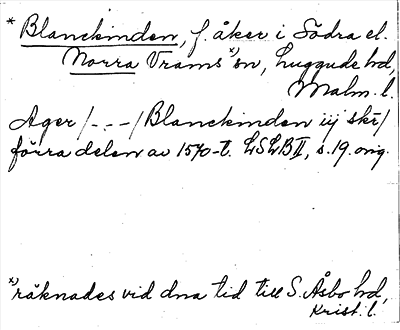 * Blanckinden, f. åker i Södra el.
Norra Vrams x) sn, Luggude hd,
Malm. l.
Ager /_ . _ _/ Blanckinden iij skr/
förra delen av 1570-t. LSLB II, s. 19. orig.
x) räknades vid dna tid till S. Åsbo hd,
Krist. l.